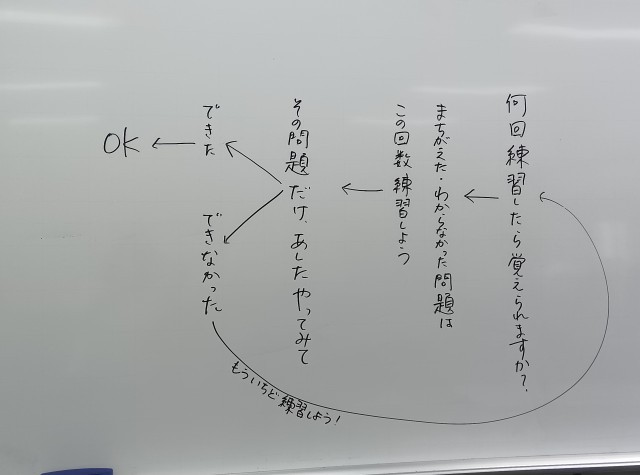 何回練習したら覚えられますか?
まちがえた・わからなかった問題は
この回数練習しよう
その問題だけ、あしたやってみて
できた
OK
できなかった
もういちど練習しよう!